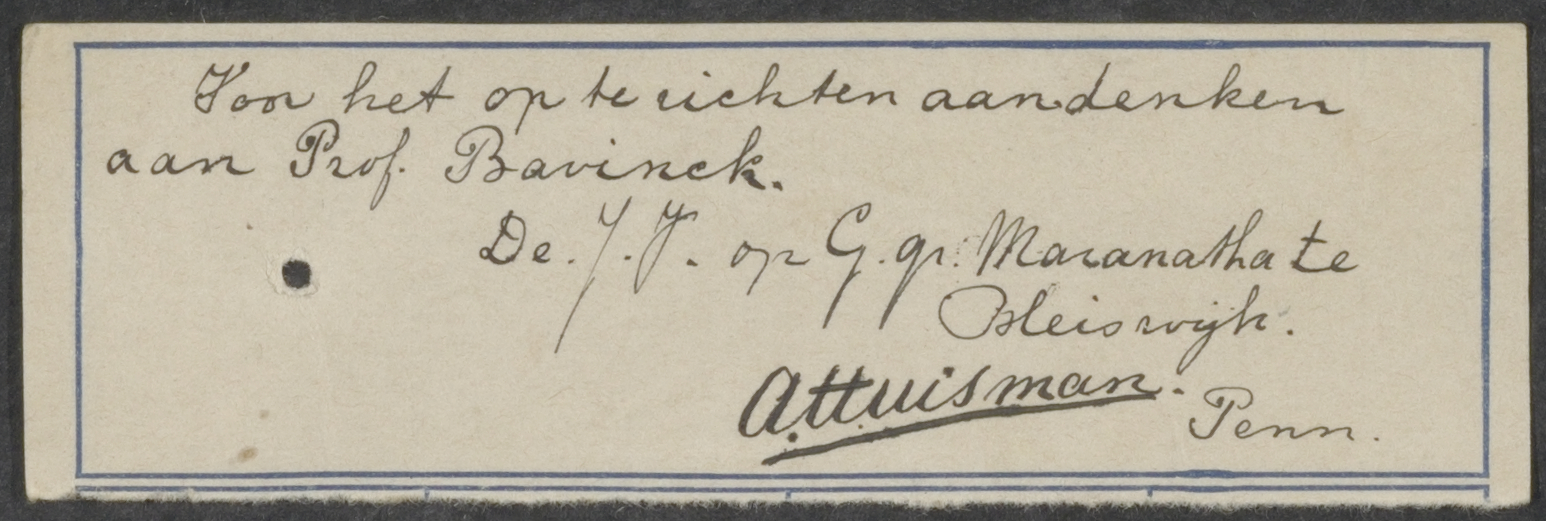 Voor het op te richten aandenken
aan Prof. Bavinck.
De. J. V. op G. gr. Maranatha te
Bleiswijk.
A. Huisman.
Penn.